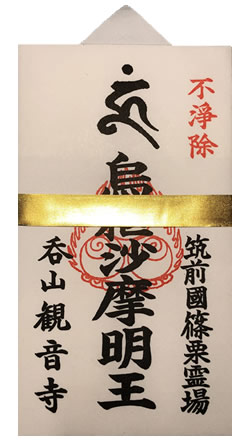 不淨除
筑前國篠栗霊場
烏枢沙摩明王
呑山観音寺